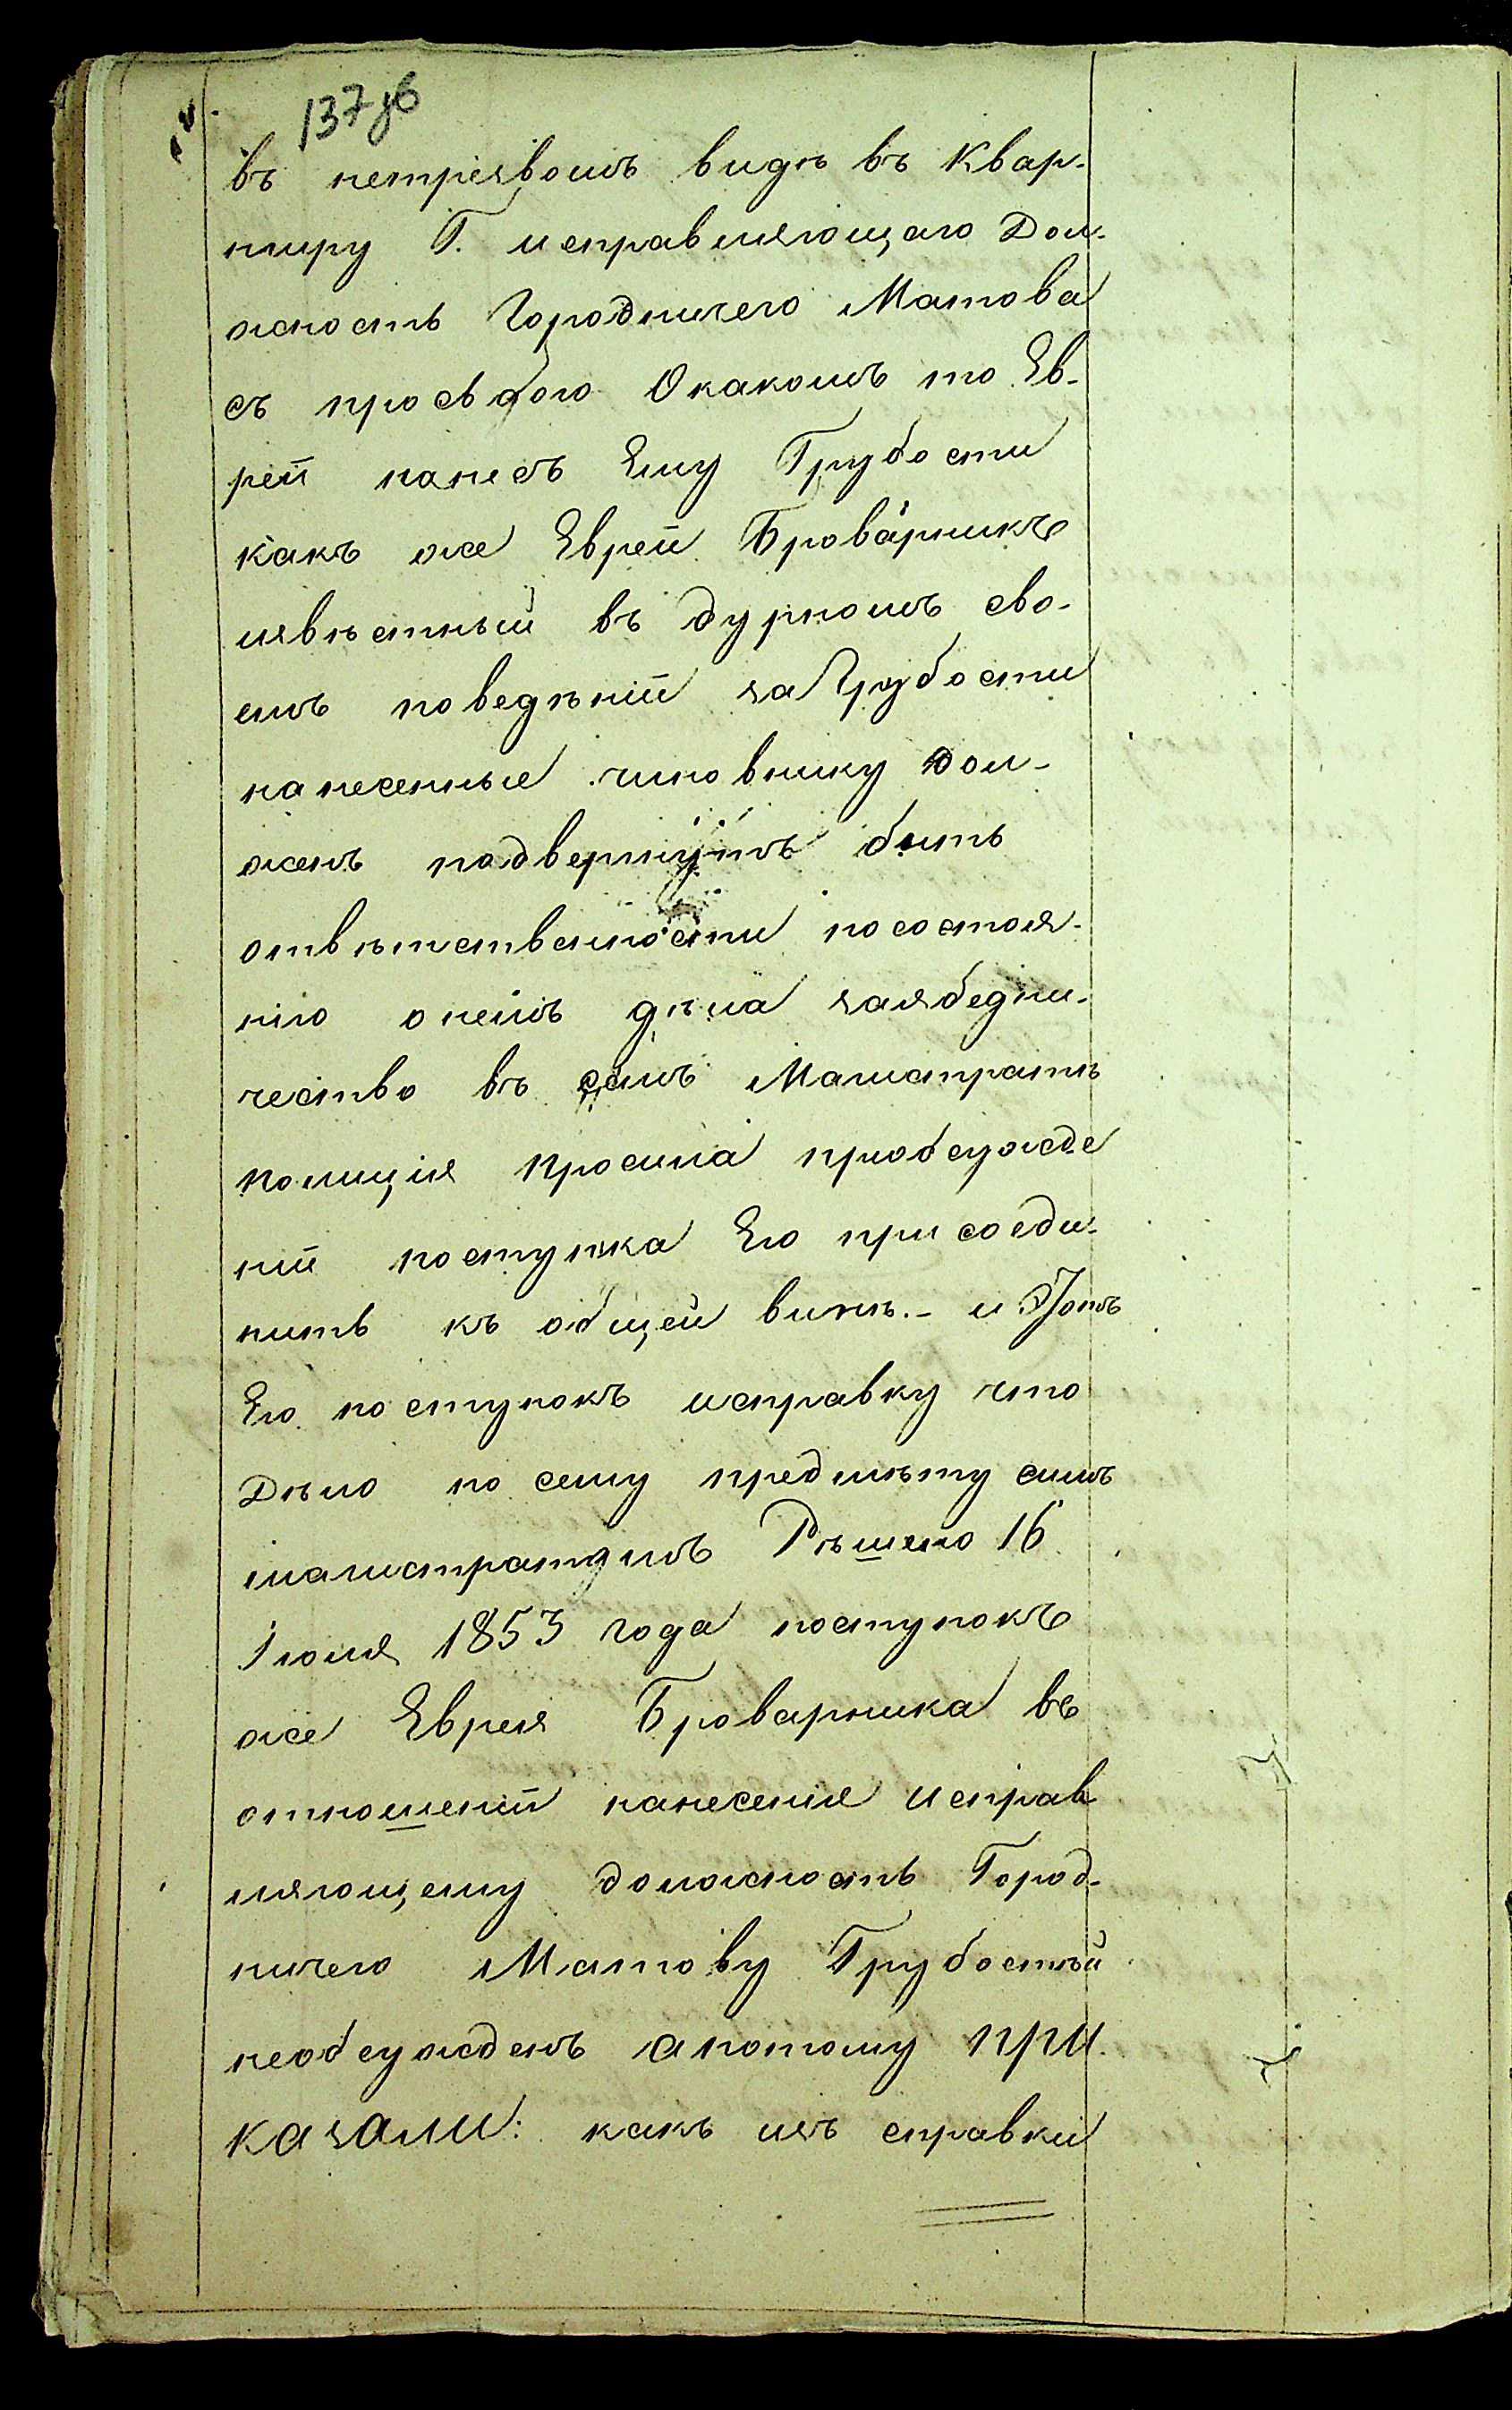 137 об
въ нетрезвомъ видѣ въ Квар-
тиру Г. исправляющаго Дол-
жность Городничего Матова
съ прозьбою Окакомъ то Ев-
реи нанесъ Ему Грубости
какъ же Еврей Броварникъ
извѣстный въ дурномъ сво-
емъ поведѣніи за Грубости
нанесенные чиновнику дол-
женъ подвергнутъ быть
отвѣтственности по состоя-
нію онемъ дѣла заябедни-
чество въ семъ Магистратѣ
полиція просила приобсужде
ніи поступка Его присоеди-
нить къ общей винѣ.- и Тотъ
Его поступокъ исправку что
Дѣло по сему предмѣту симъ
магистратомъ Рѣшено 16
Іюля 1853 года поступокъ
же Еврея Броварника въ
отношеніи нанесенія исправ
ляющему должность Город-
ничего Матову Грубостей
необсужденъ апотому при-
казали: какъ изъ справки